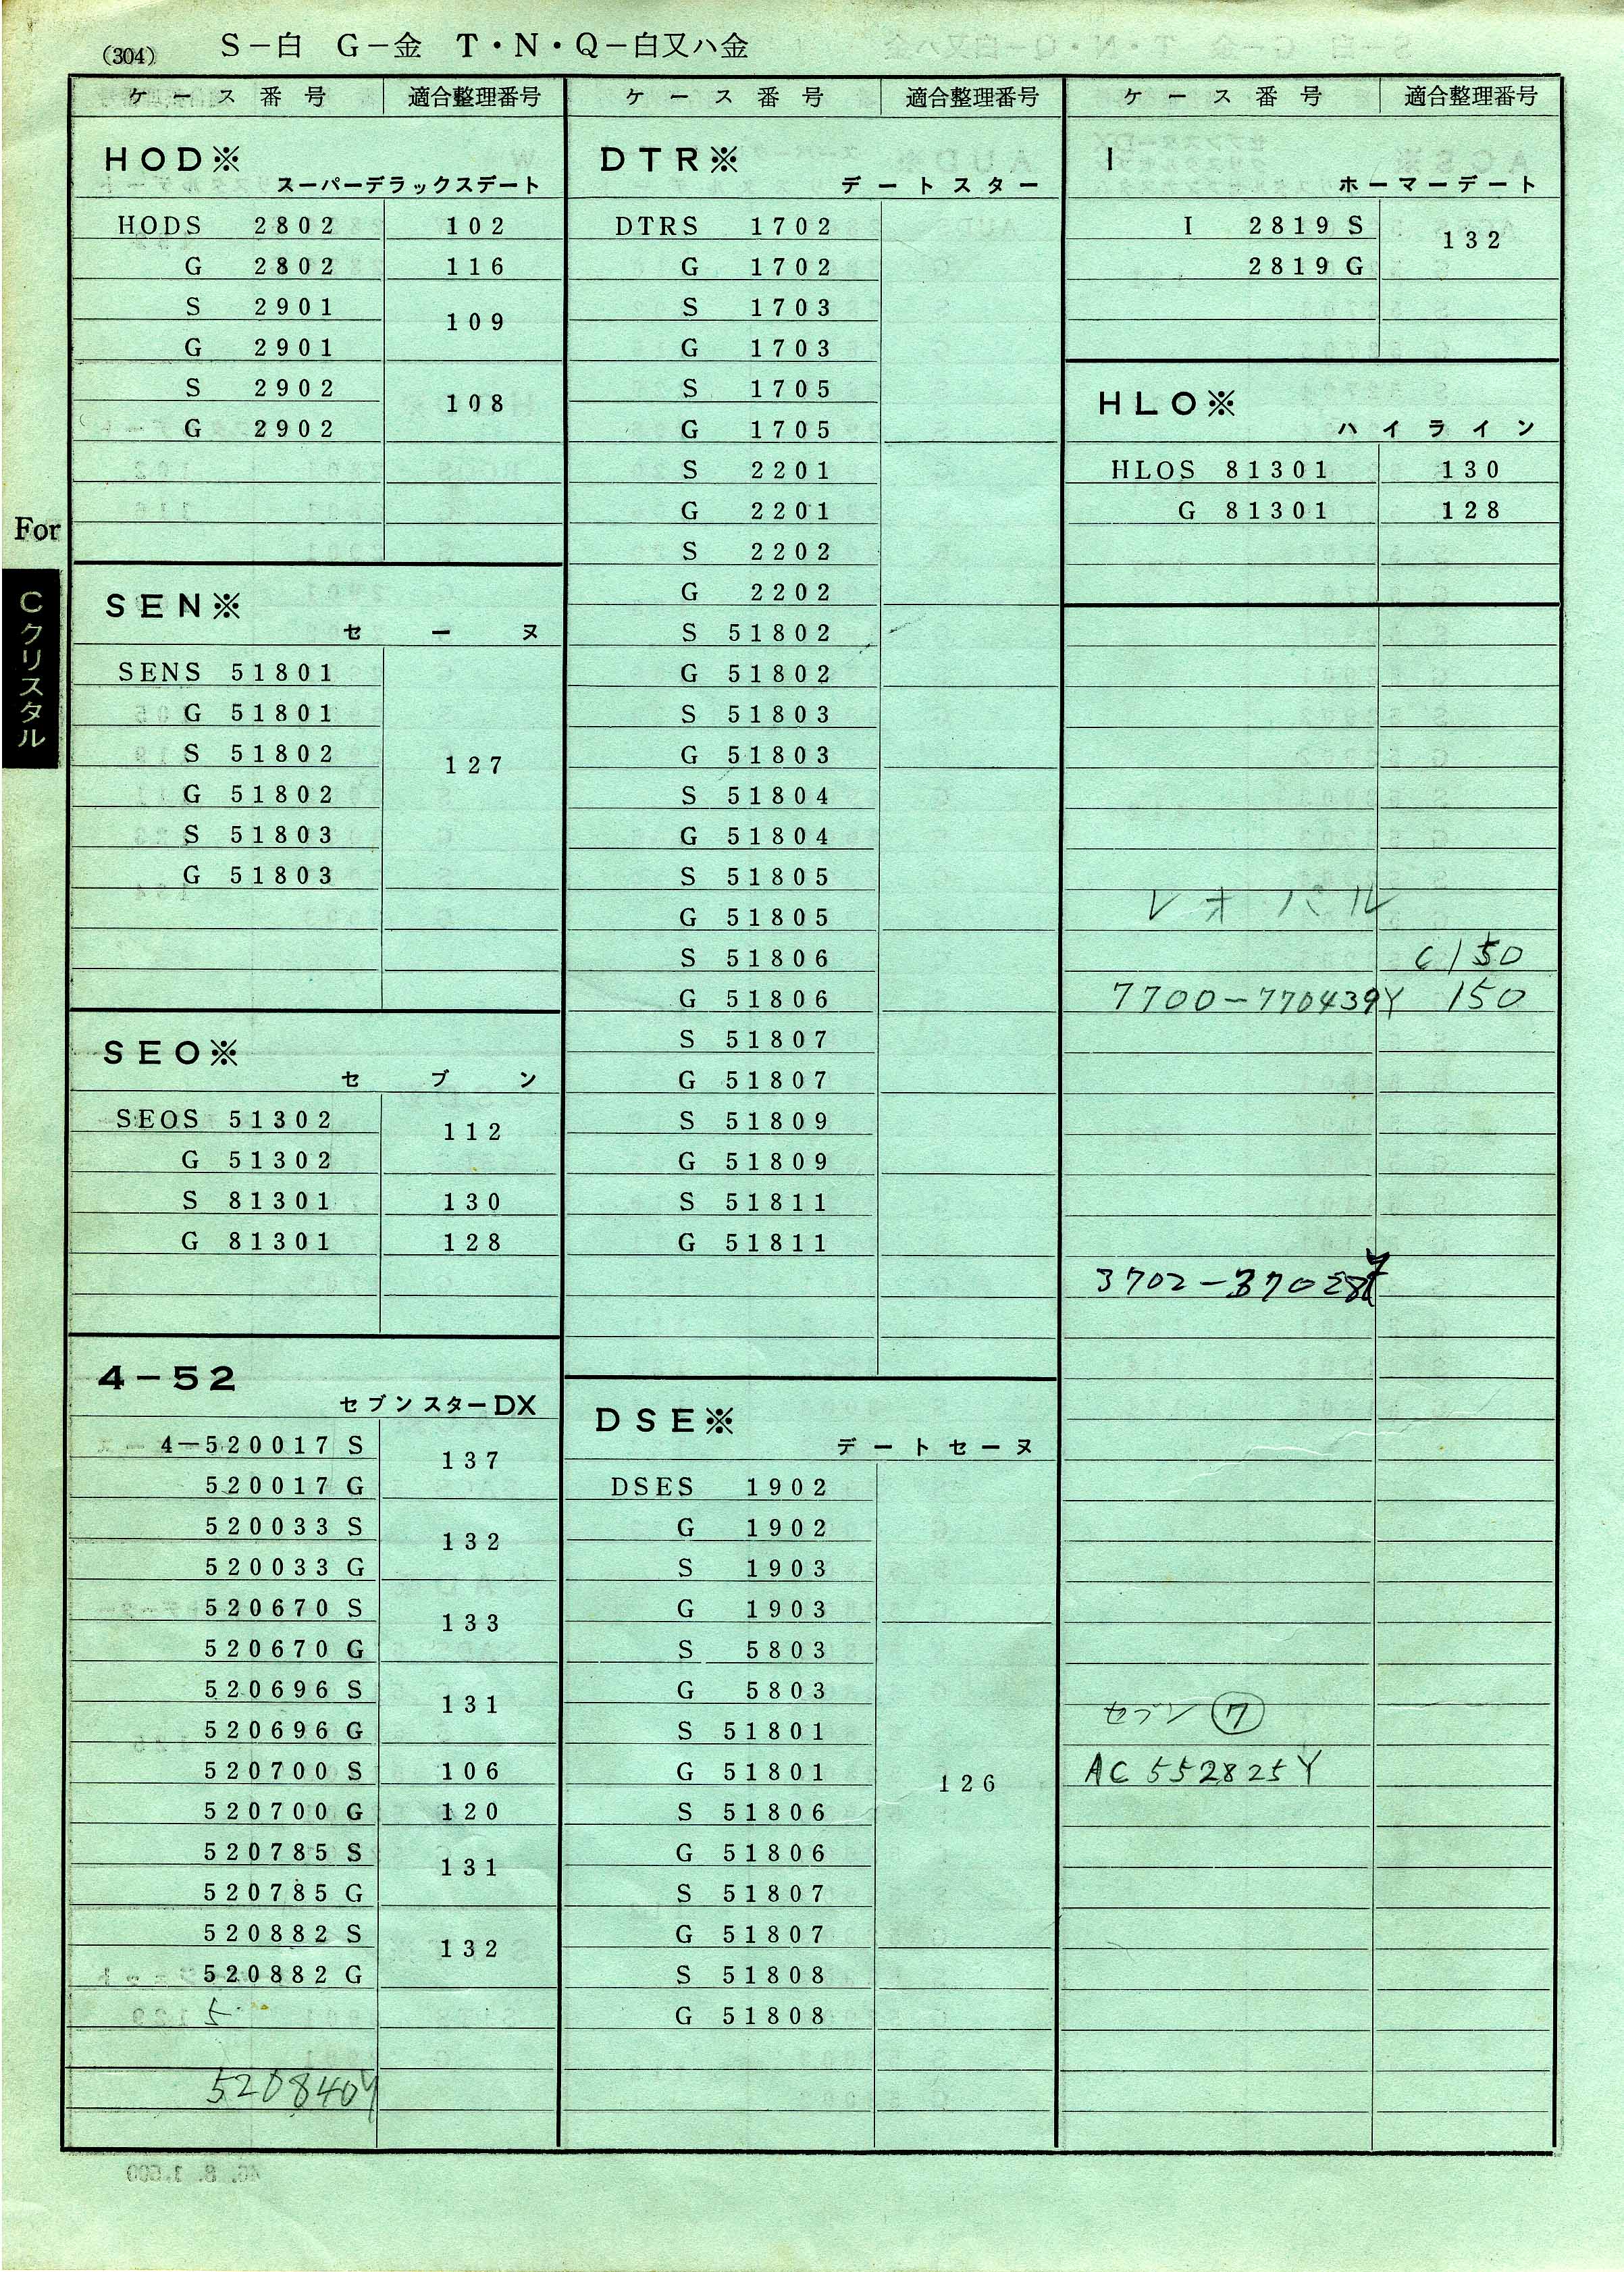 (304) S－白 G－金 T・N・Q－白又ハ金
For
Cクリスタル
ケース番号 適合整理番号
HOD※
スーパーデラックスデート
HODS 2802 102
G 2802 116
S 2901 109
G 2901
S 2902 108
G 2902
SEN※
セーヌ
SENS 51801
G 51801
S 51802 127
G 51802
S 51803
G 51803
SEO※
セブン
SEOS 51302 112
G 51302
S 81301 130
G 81301 128
4－52
セブンスターDX
4－520017 S 137
520017 G
520033 S 132
520033 G
520670 S 133
520670 G
520696 S 131
520696 G
520700 S 106
520700 G 120
520785 S 131
520785 G
520882 S 132
520882 G
5
520840Y
ケース番号 適合整理番号
DTR※
デートスター
DTRS 1702
G 1702
S 1703
G 1703
S 1705
G 1705
S 2201
G 2201
S 2202
G 2202
S 51802
G 51802
S 51803
G 51803
S 51804
G 51804
S 51805
G 51805
S 51806
G 51806
S 51807
G 51807
S 51809
G 51809
S 51811
G 51811
DSE※
デートセーヌ
DSES 1902
G 1902
S 1903
G 1903
S 5803
G 5803
S 51801
G 51801 126
S 51806
G 51806
S 51807
G 51807
S 51808
G 51808
ケース番号 適合整理番号
I
ホーマーデート
I 2819 S 132
2819 G
HLO※
ハイライン
HLOS 81301 130
G 81301 128
レオパル
C150
7700－770439Y 150
3702－37028
セブン ⑦
AC 552825Y